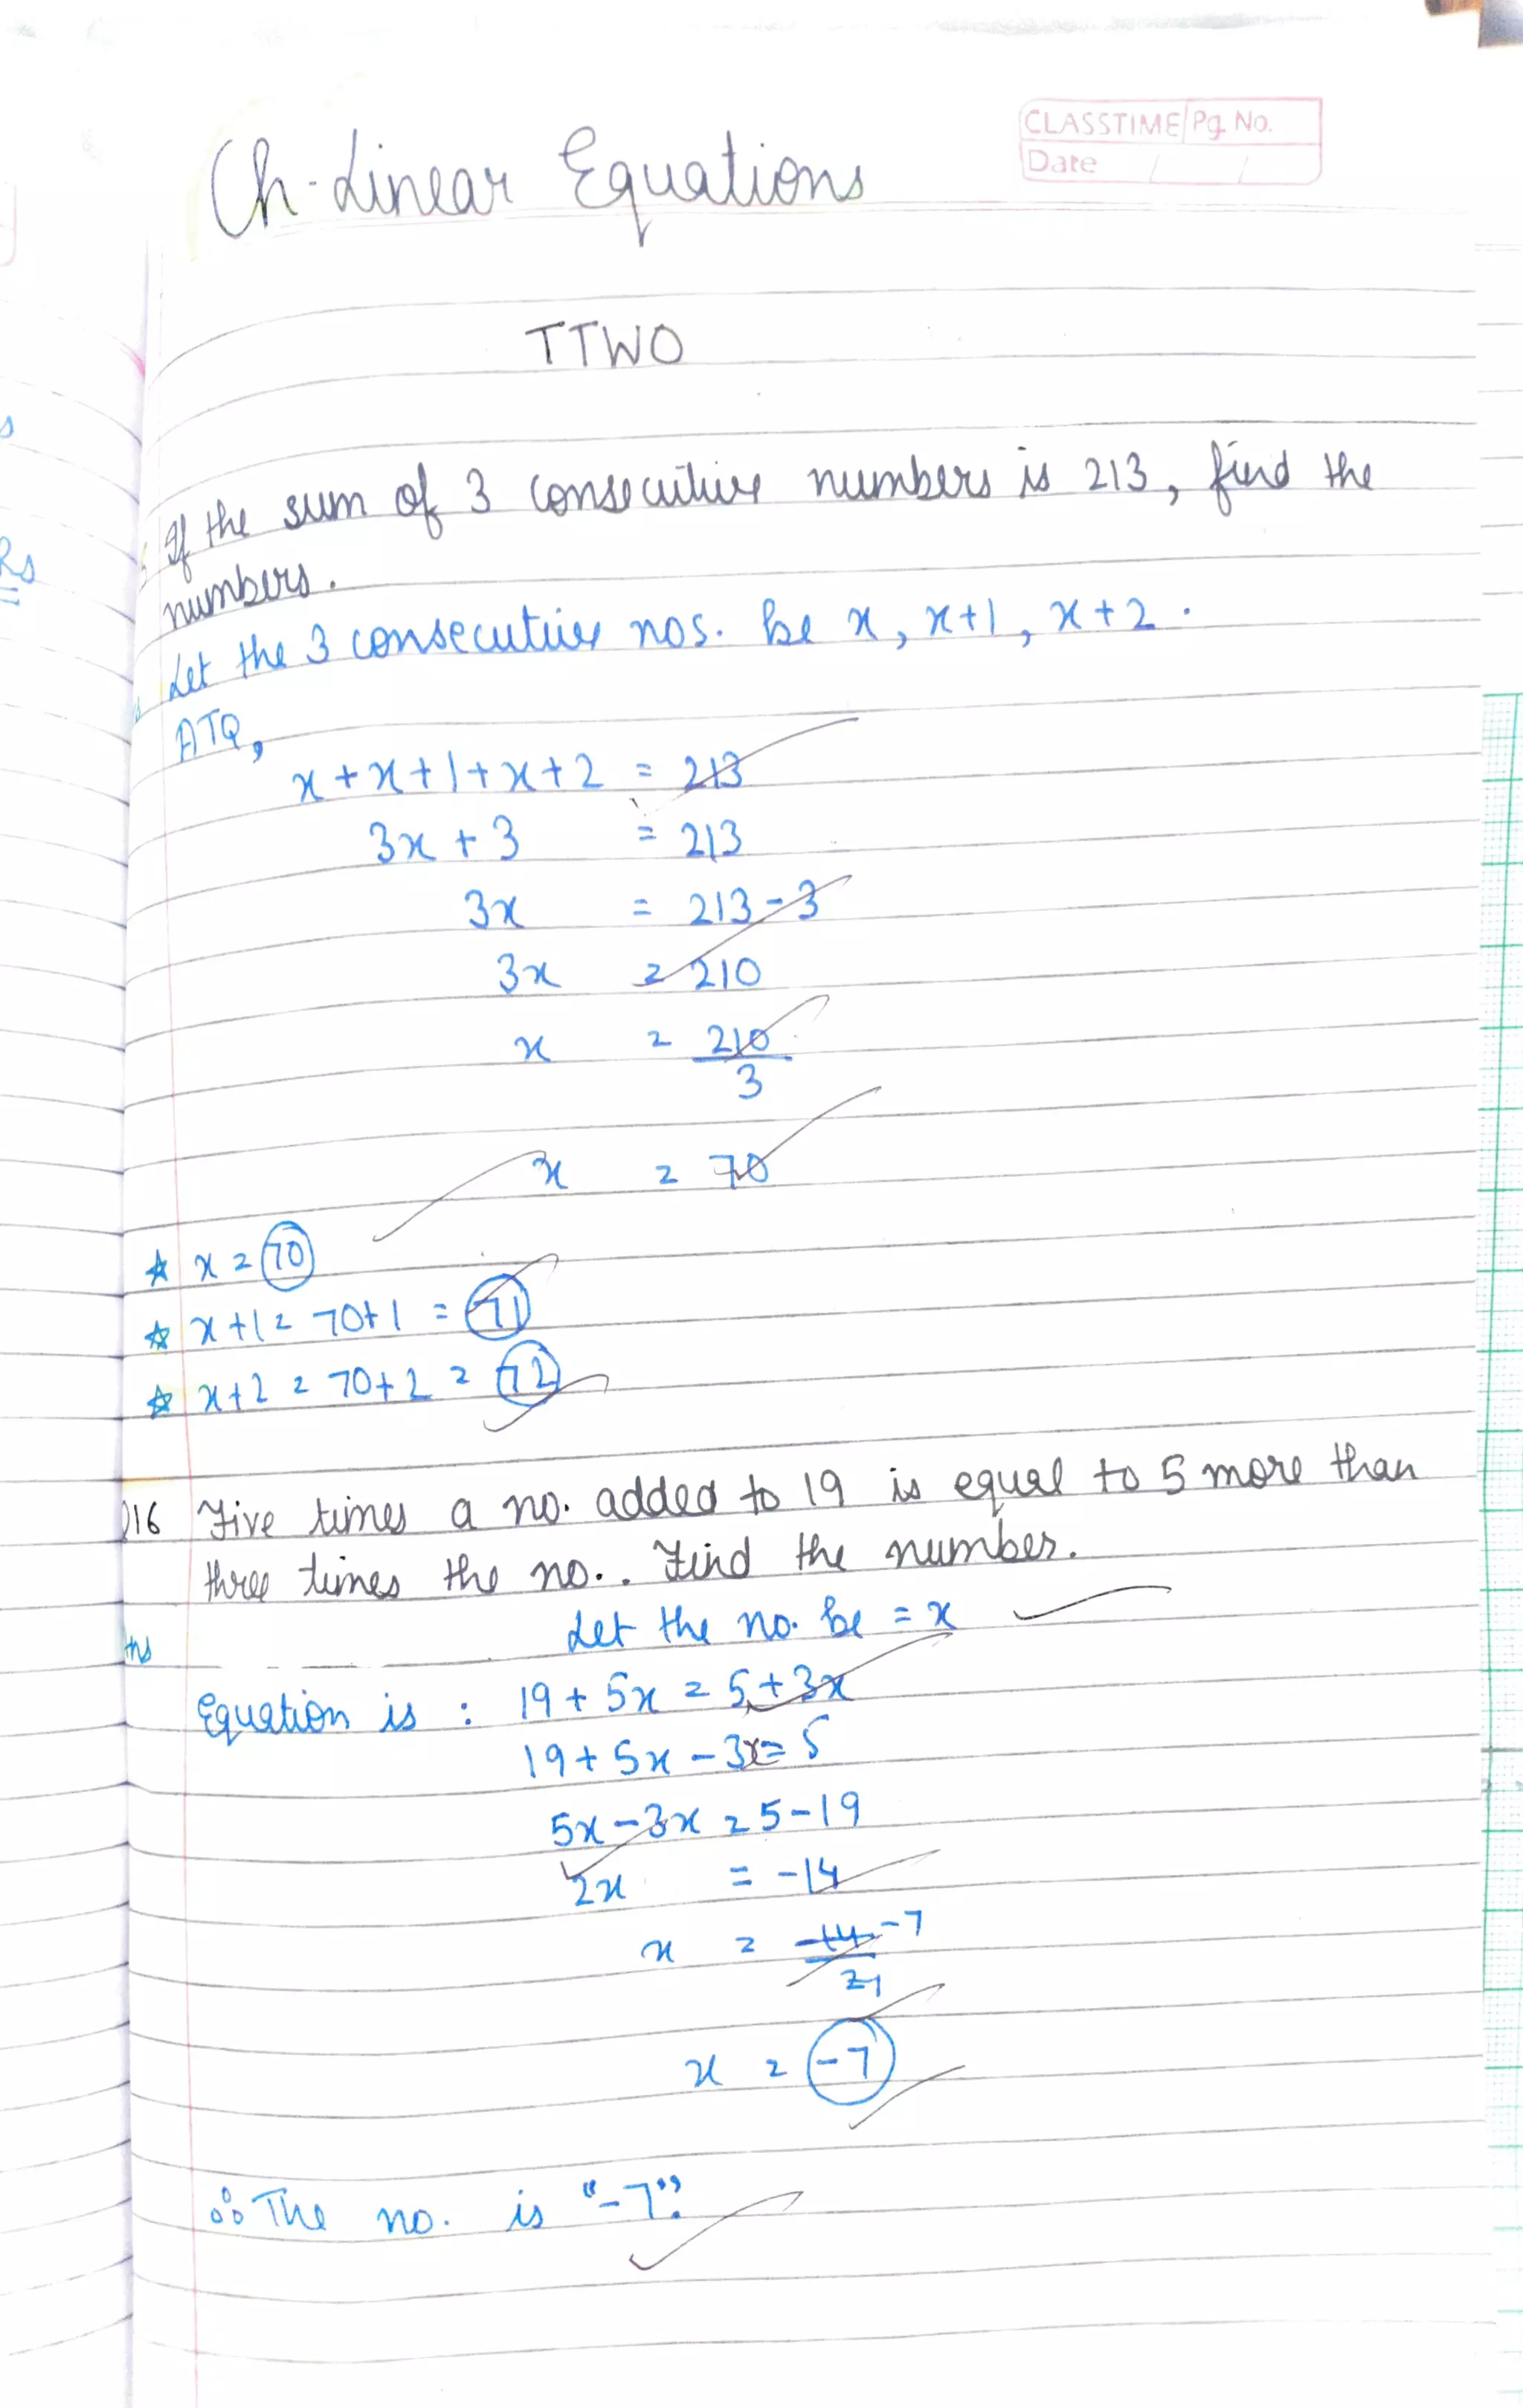 CLASSTIME Pg. No.
Date / /
Ch-Linear Equations
TTWO
If the sum of 3 consecutive numbers is 213, find the
numbers.
Let the 3 consecutive nos. be x, x+1, x+2.
ATQ,
x+x+1+x+2 = 213
3x+3 = 213
3x = 213-3
3x = 210
x = 210/3
x = 70
☆ x = 70
☆ x+1 = 70+1 = 71
☆ x+2 = 70+2 = 72
Q16 Five times a no. added to 19 is equal to 5 more than
three times the no.. Find the number.
Ans Let the no. be = x
Equation is : 19+5x = 5+3x
19+5x-3x=5
5x-3x = 5-19
2x = -14
x = -14/2 -7 1
x = -7
∴ The no. is "-7".